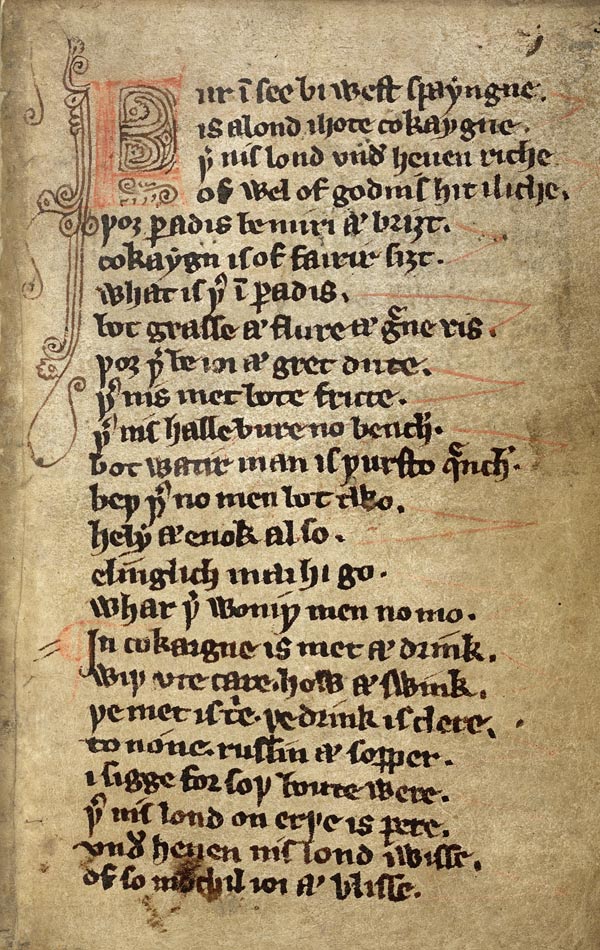 Bur ī see bi west spayngne.
is a lond ihote cokaygne.
þ͛ nis lond vnd͛ heuen riche
of wel of godnis hit iliche.
þoȝ ꝑadis be miri ⁊ briȝt.
cokaygn is of fairir siȝt.
what is þ͛ ī ꝑadis.
bot grasse ⁊ flure ⁊ gͣne ris.
þoȝ þ͛ be ioi ⁊ gret dute.
þ͛ nis met bote frute.
þ͛ nis halle bure no bench.
bot watir man is þursto qͣnch.
beþ þ͛ no men bot two.
hely ⁊ enok also.
elinglich mai hi go.
whar þ͛ woniþ men no mo.
In cokaigne is met ⁊ drink.
wiþ vte care. how ⁊ swink.
þe met is tͥe. þe drink is clere.
to none. russin ⁊ sopper.
i sigge for soþ boute were.
þ͛ nis lond on erþe is pere.
vnd͛ heuen nis lond iwisse.
of so mochil ioi ⁊ blisse.